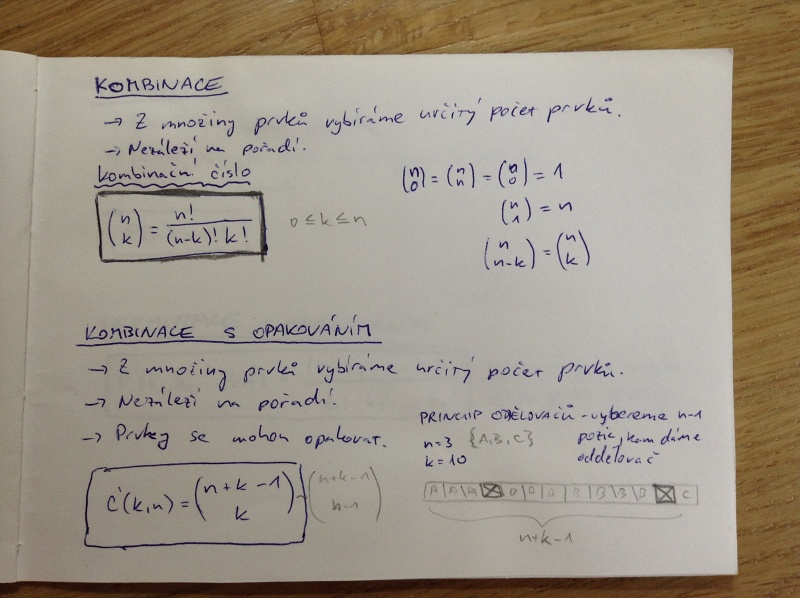 KOMBINACE
→ Z množiny prvků vybíráme určitý počet prvků.
→ Nezáleží na pořadí.
kombinační číslo
(n k) = n! / (n-k)! k!
0 ≤ k ≤ n
(n 0) = (n n) = (n 0) = 1
(n 1) = n
(n n-k) = (n k)
KOMBINACE S OPAKOVÁNÍM
→ Z množiny prvků vybíráme určitý počet prvků.
→ Nezáleží na pořadí.
→ Prvky se mohou opakovat.
C'(k,n) = (n+k-1 k)
(n+k-1 n-1)
PRINCIP ODĚLOVAČŮ - vybereme n-1
pozic, kam dáme
oddělovač
n=3 {A,B,C}
k=10
A|A|A|X|B|B|B|B|B|B|X|C
n+k-1